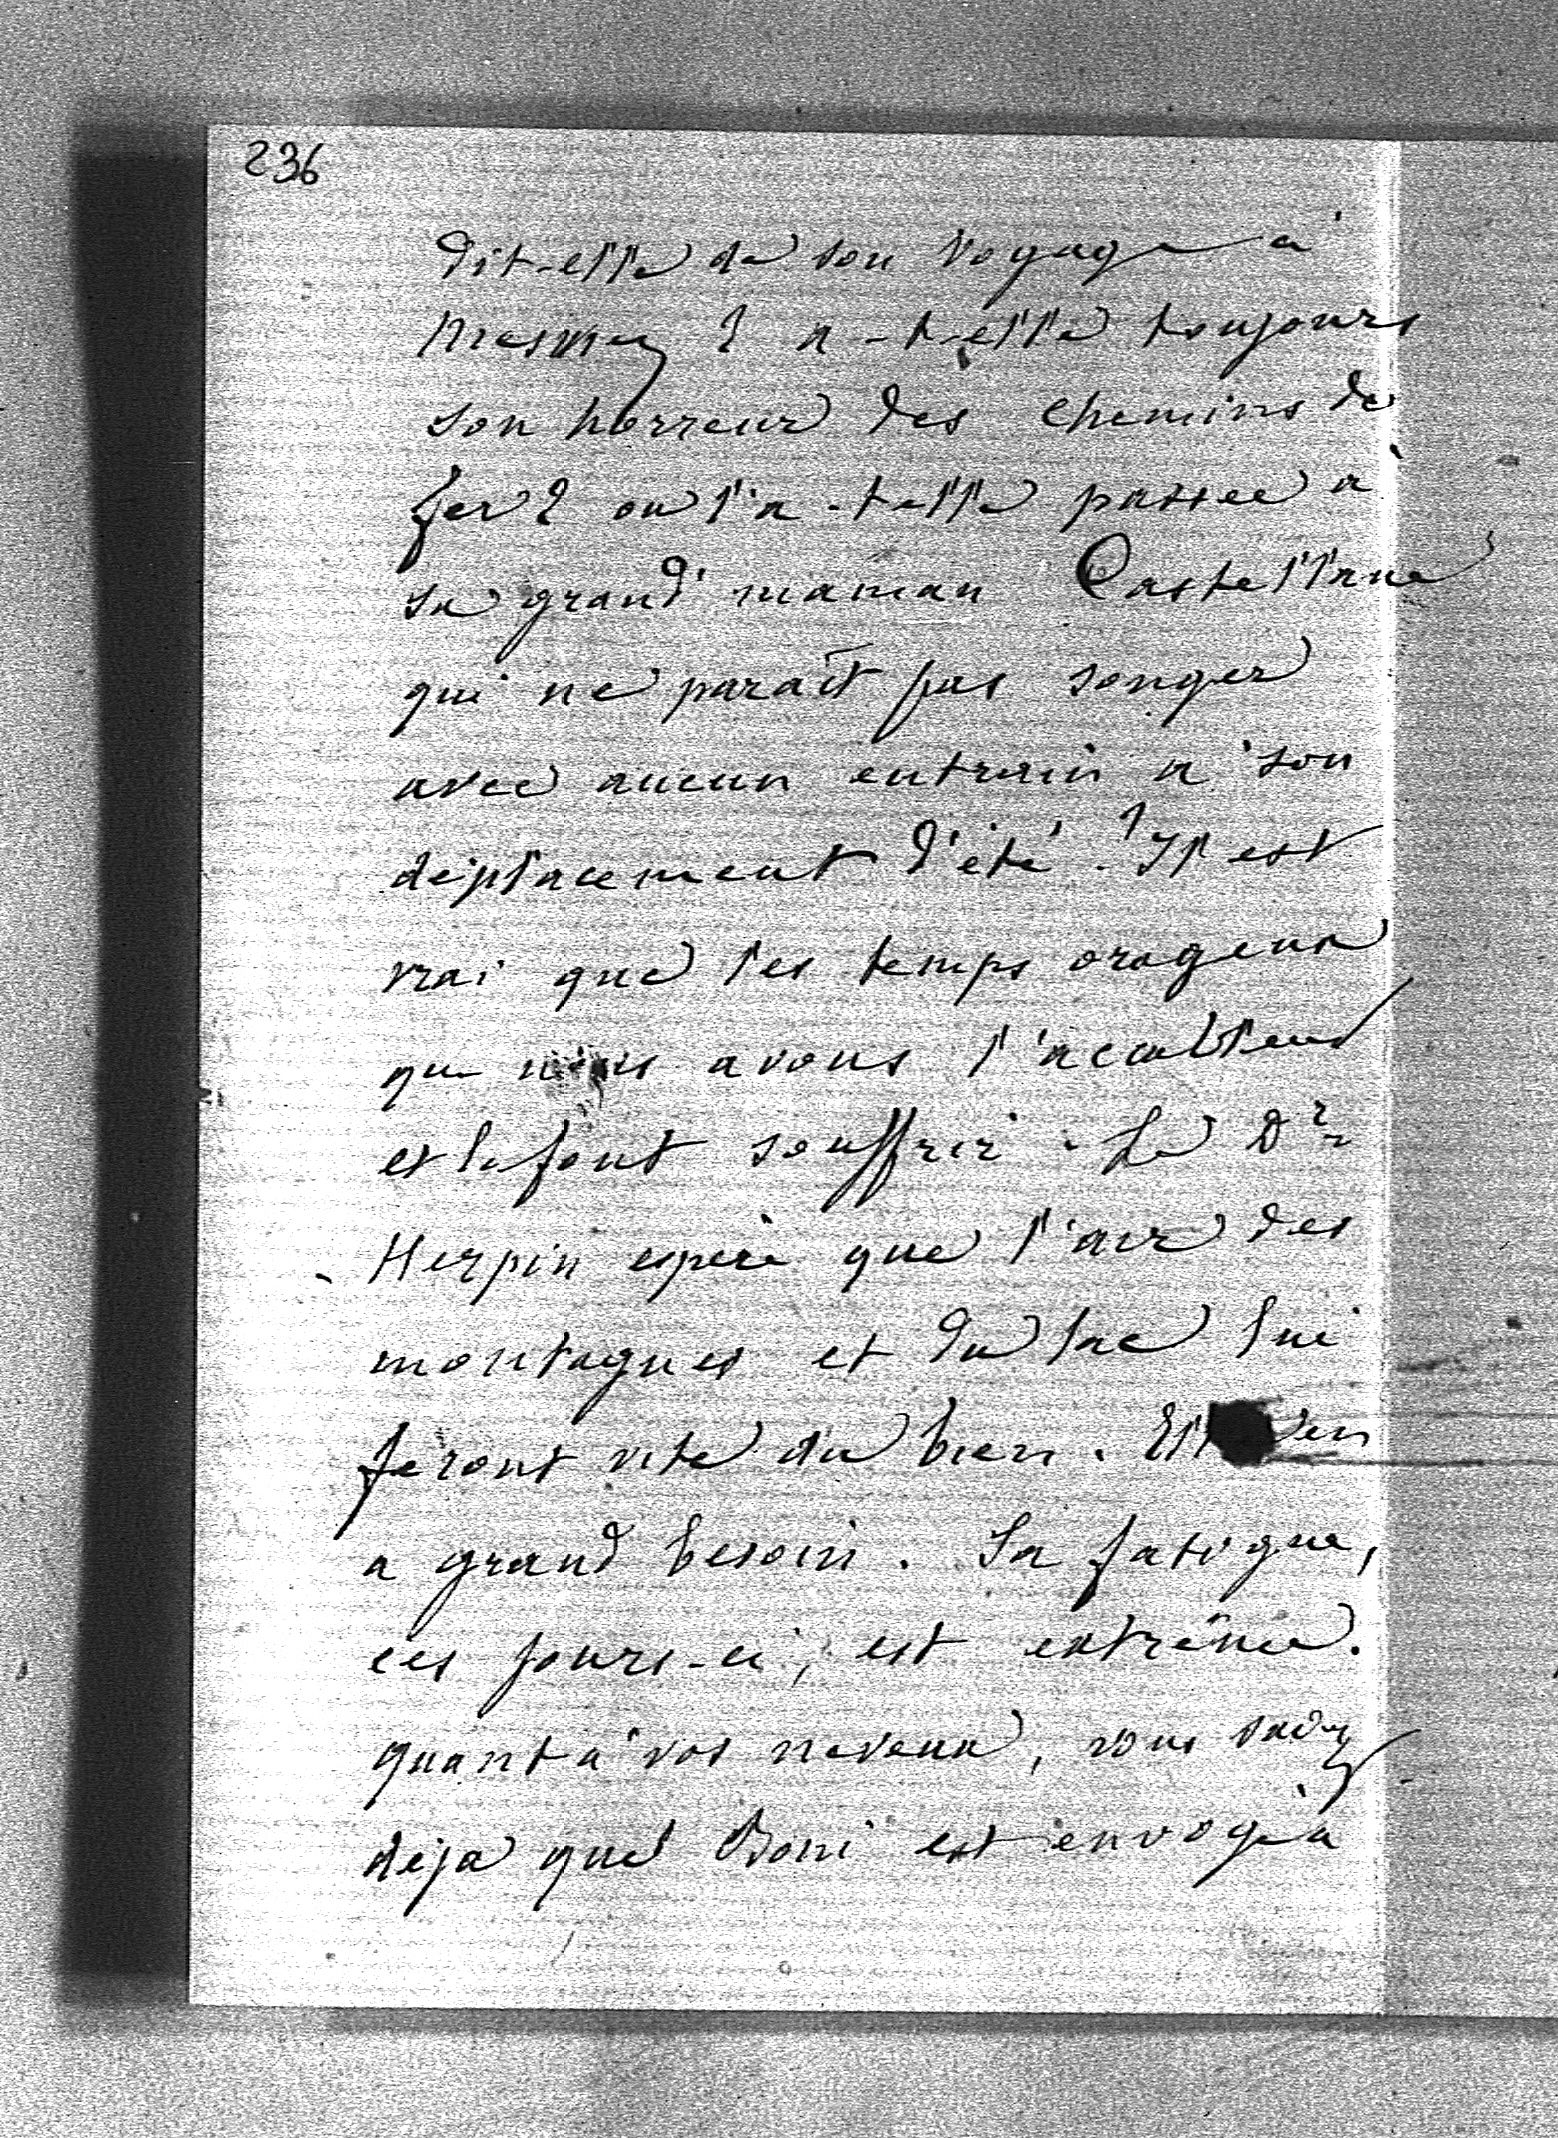 236
dit-elle de son voyage à
? a-t-elle toujours
son horreur des chemins de
fer ? ou l'a-t-elle passée à
sa grand'maman Castellane
qui ne paraît pas songer
avec aucun entrain à son
déplacement d'été ? Il est
vrai que les temps orageux
que nous avons l'accablent
et la font souffrir. Le Dr
Herpin espère que l'air des
montagnes et du lac lui
feront vite du bien. Elle en
a grand besoin. Sa fatigue,
ces jours-ci, est extrême.
quant à vos neveux, vous savez
déjà que Boni est envoyé à